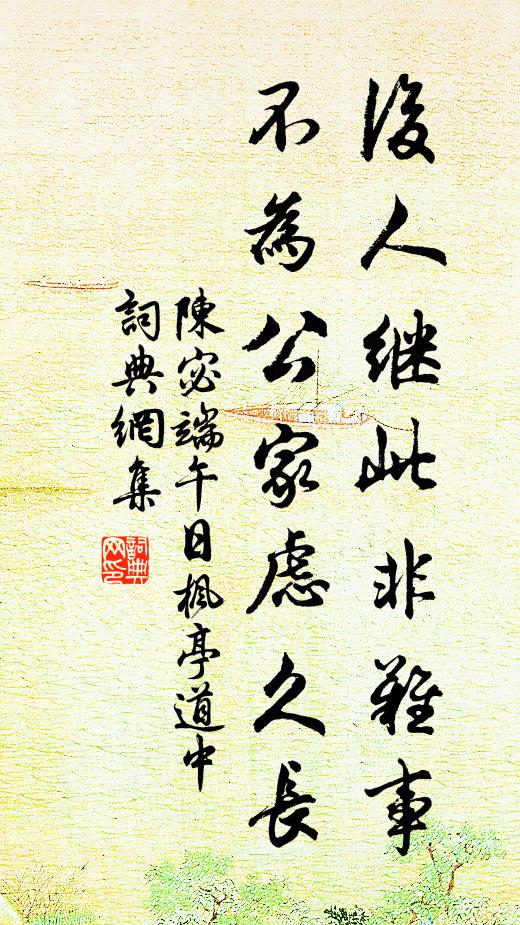 後人继此非難事
不為公家慮久長
陳宓端午日楓亭道中
詞典網集
詞典
网印